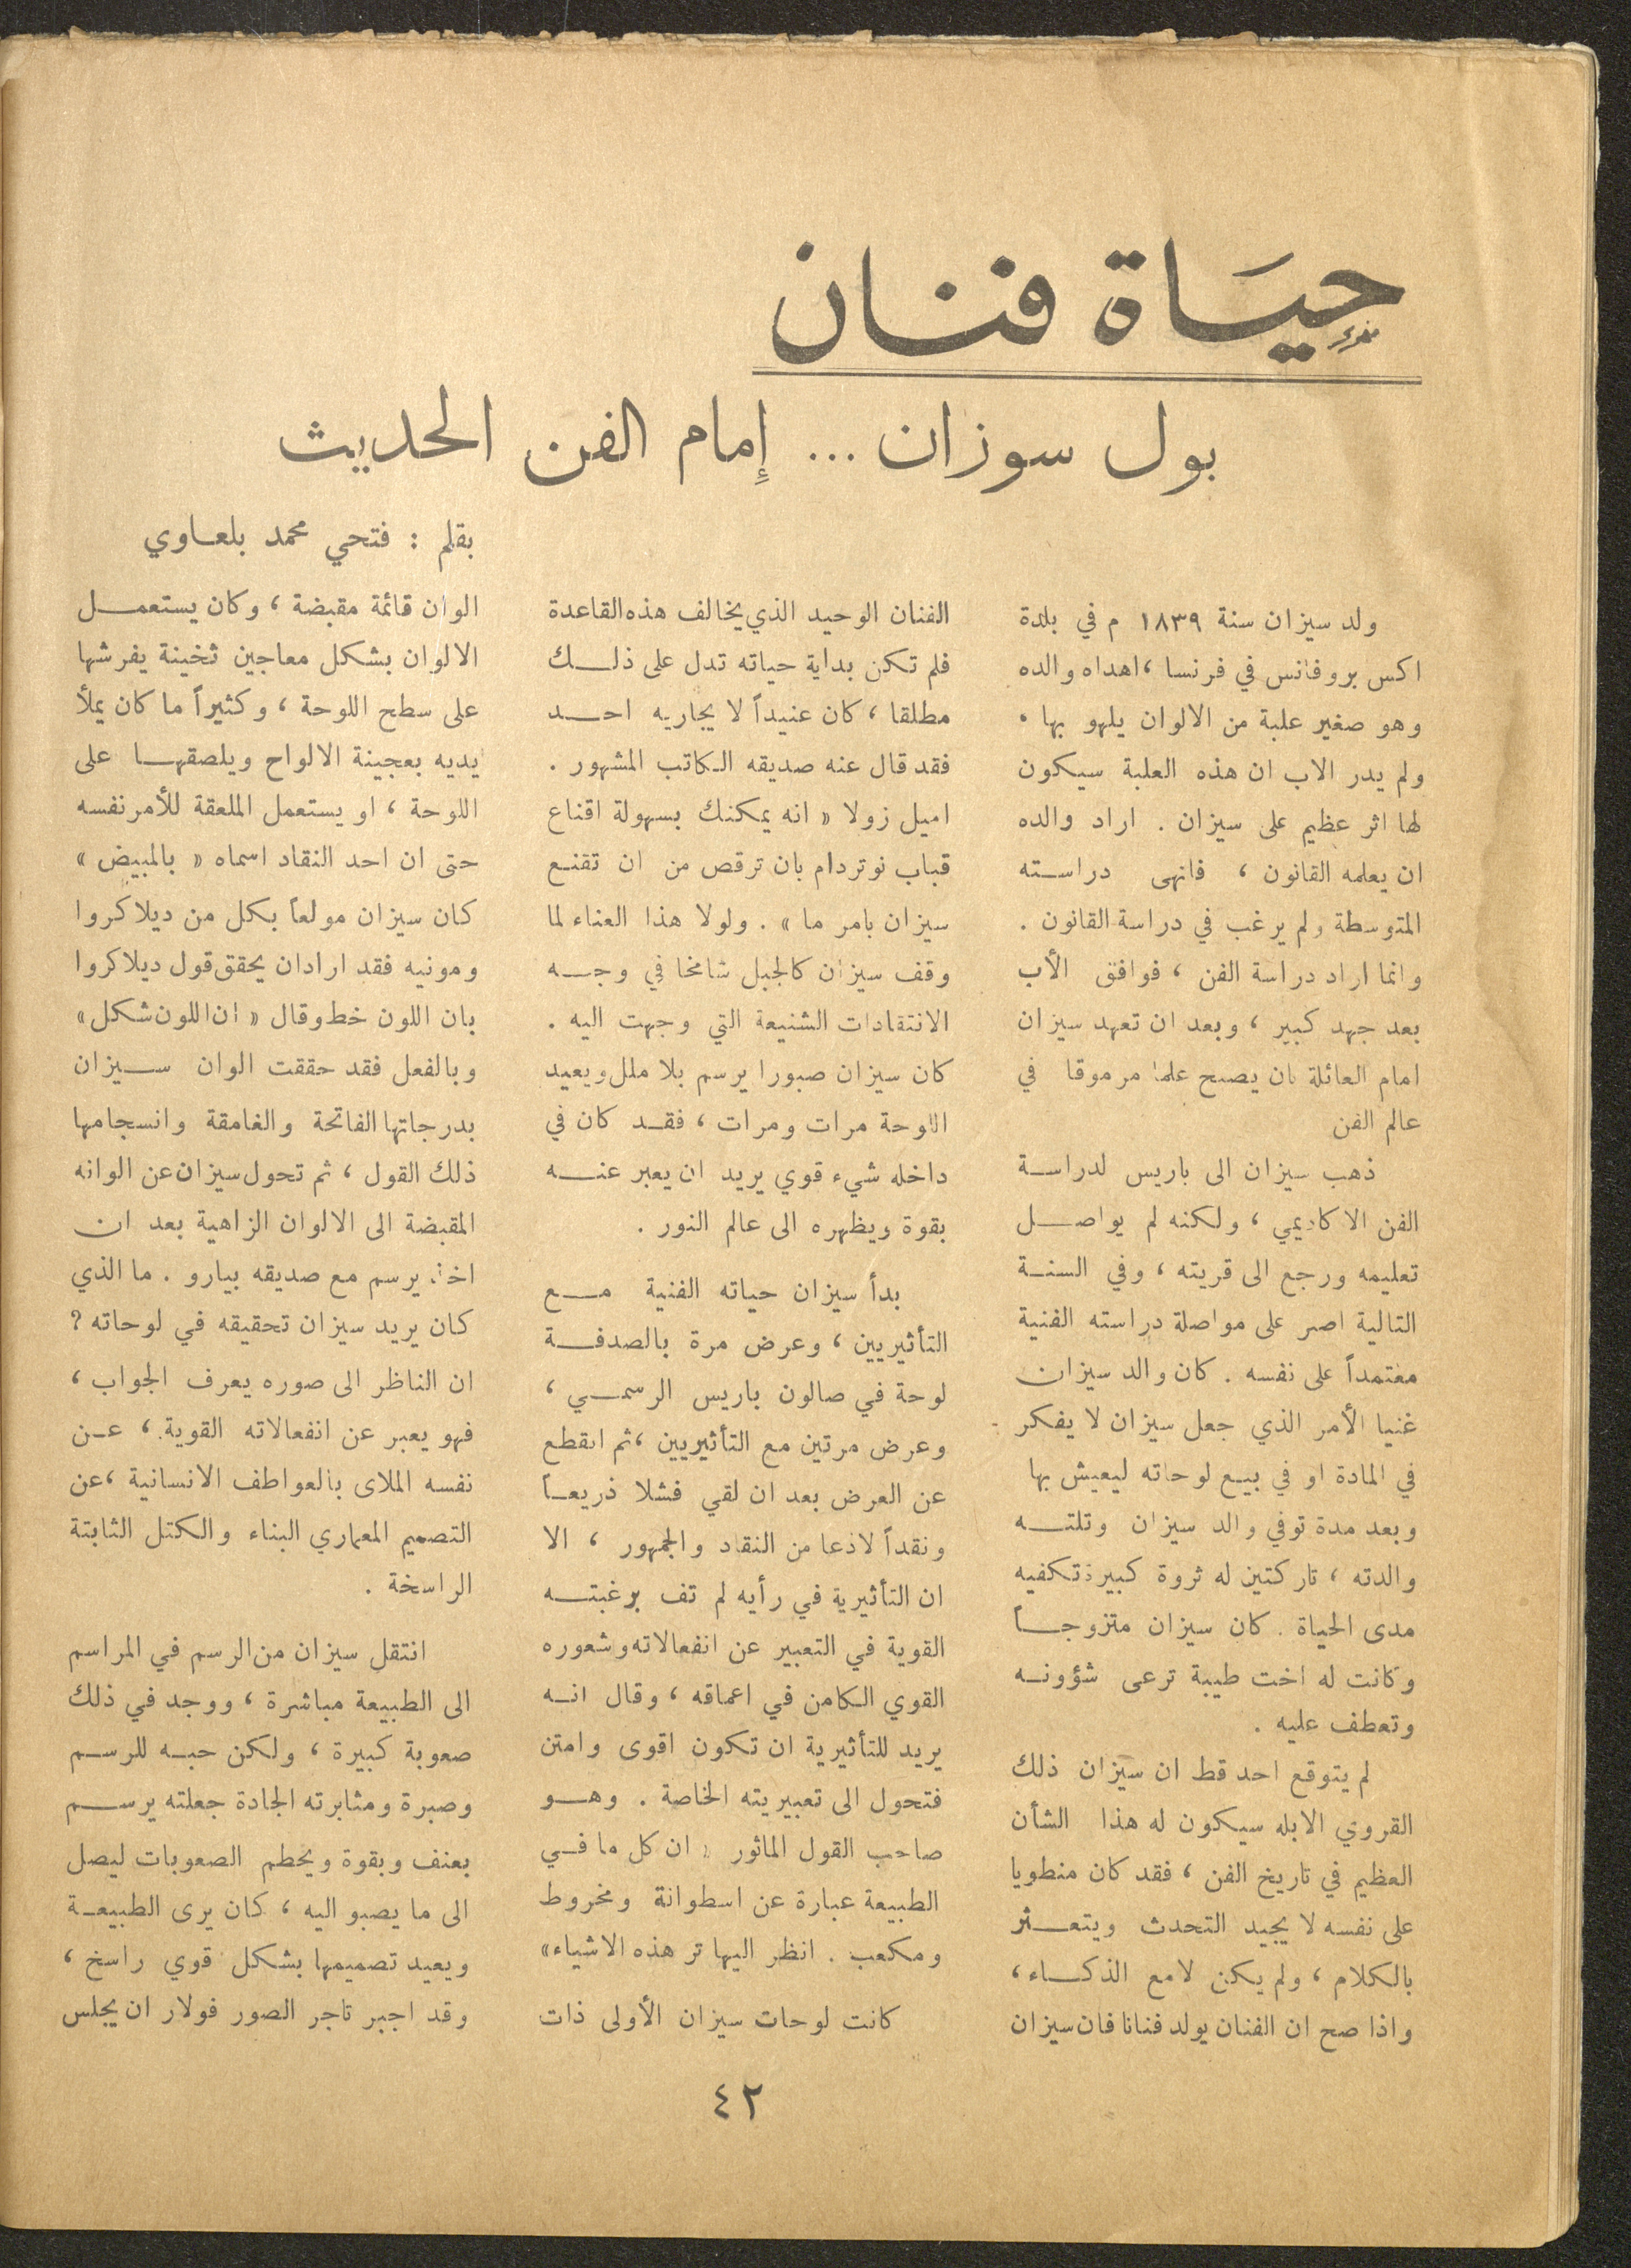 حياة فنان
بول سوزان ... إمام الفن الحديث
بقلم : فتحي محمد بلعاوي
ولد سيزان سنة ١٨٣٩ م في بلدة
اكس بروفانس في فرنسا ، اهداه والده
وهو صغير علبة من الالوان يلهو بها .
ولم يدر الاب ان هذه العلبة سيكون
لها اثر عظيم على سيزان . اراد والده
ان يعلمه القانون ، فانهى دراسته
المتوسطة ولم يرغب في دراسة القانون .
وانما اراد دراسة الفن ، فوافق الأب
بعد جهد كبير ، وبعد ان تعهد سيزان
امام العائلة بان يصبح علما مرموقا في
عالم الفن
ذهب سيزان الى باريس لدراسة
الفن الاكاديمي ، ولكنه لم يواصل
تعليمه ورجع الى قريته ، وفي السنة
التالية اصر على مواصلة دراسته الفنية
معتمداً على نفسه . كان والد سيزان
غنيا الأمر الذي جعل سيزان لا يفكر
في المادة او في بيع لوحاته ليعيش بها
وبعد مدة توفي والد سيزان وتلته
والدته ، تاركتين له ثروة كبيرة تكفيه
مدى الحياة . كان سيزان متزوجاً
وكانت له اخت طيبة ترعى شؤونه
وتعطف عليه .
لم يتوقع احد قط ان سيزان ذلك
القروي الابله سيكون له هذا الشأن
العظيم في تاريخ الفن ، فقد كان منطويا
على نفسه لا يجيد التحدث ويتعثر
بالكلام ، ولم يكن لامع الذكاء ،
واذا صح ان الفنان يولد فنانا فان سيزان
الفنان الوحيد الذي يخالف هذه القاعدة
فلم تكن بداية حياته تدل على ذلك
مطلقا ، كان عنيداً لا يجاريه احد
فقد قال عنه صديقه الكاتب المشهور .
اميل زولا « انه يمكنك بسهولة اقناع
قباب نوتردام بان ترقص من ان تقنع
سيزان بامر ما » . ولولا هذا العناء لما
وقف سيزان كالجبل شامخا في وجه
الانتقادات الشنيعة التي وجهت اليه .
كان سيزان صبورا يرسم بلا ملل ويعيد
اللوحة مرات ومرات ، فقد كان في
داخله شيء قوي يريد ان يعبر عنه
بقوة ويظهره الى عالم النور .
بدأ سيزان حياته الفنية مع
التأثيريين ، وعرض مرة بالصدفة
لوحة في صالون باريس الرسمي ،
وعرض مرتين مع التأثيريين ، ثم انقطع
عن العرض بعد ان لقي فشلا ذريعاً
ونقداً لاذعا من النقاد والجمهور ، الا
ان التأثيرية في رأيه لم تف برغبته
القوية في التعبير عن انفعالاته وشعوره
القوي الكامن في اعماقه ، وقال انه
يريد للتأثيرية ان تكون اقوى وامتن
فتحول الى تعبيريته الخاصة . وهو
صاحب القول الماثور « ان كل ما في
الطبيعة عبارة عن اسطوانة ومخروط
ومكعب . انظر اليها تر هذه الاشياء»
كانت لوحات سيزان الأولى ذات
الوان قائمة مقبضة ، وكان يستعمل
الالوان بشكل معاجين ثخينة يفرشها
على سطح اللوحة ، وكثيراً ما كان يملأ
يديه بعجينة الالواح ويلصقها على
اللوحة ، او يستعمل الملعقة للأمر نفسه
حتى ان احد النقاد اسماه « بالمبيض »
كان سيزان مولعاً بكل من ديلاكروا
ومونيه فقد اراد ان يحقق قول ديلاكروا
بان اللون خط وقال « ان اللون شكل »
وبالفعل فقد حققت الوان سيزان
بدرجاتها الفاتحة والغامقة وانسجامها
ذلك القول ، ثم تحول سيزان عن الوانه
المقبضة الى الالوان الزاهية بعد ان
اخذ يرسم مع صديقه بيارو . ما الذي
كان يريد سيزان تحقيقه في لوحاته ?
ان الناظر الى صوره يعرف الجواب ،
فهو يعبر عن انفعالاته القوية ، عن
نفسه الملاى بالعواطف الانسانية ، عن
التصميم المعماري البناء والكتل الثابتة
الراسخة .
انتقل سيزان من الرسم في المراسم
الى الطبيعة مباشرة ، ووجد في ذلك
صعوبة كبيرة ، ولكن حبه للرسم
وصبرة ومثابرته الجادة جعلته يرسم
بعنف وبقوة ويحطم الصعوبات ليصل
الى ما يصبو اليه ، كان يرى الطبيعة
ويعيد تصميمها بشكل قوي راسخ ،
وقد اجبر تاجر الصور فولار ان يجلس
٤٢